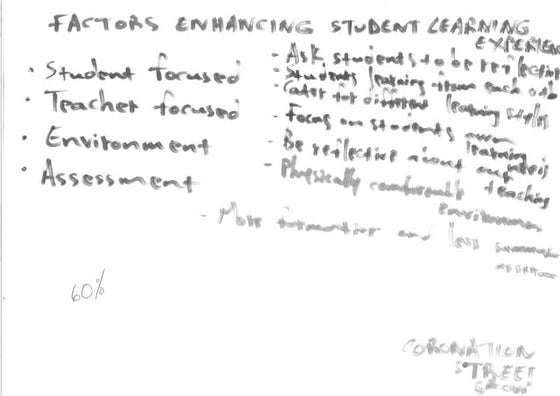 FACTORS ENHANCING STUDENT LEARNING
EXPERIEN
· Student focused
· Teacher focused
· Environment
· Assessment
- Ask students to be reflective
- Students learning from each oth
- Cater for different learning styles
- Focus on students own
learning needs
- Be reflective about our
teaching
- Physically comfortable
environment
- More formative and less summative
assessment
60%
CORONATION
STREET
GROUP